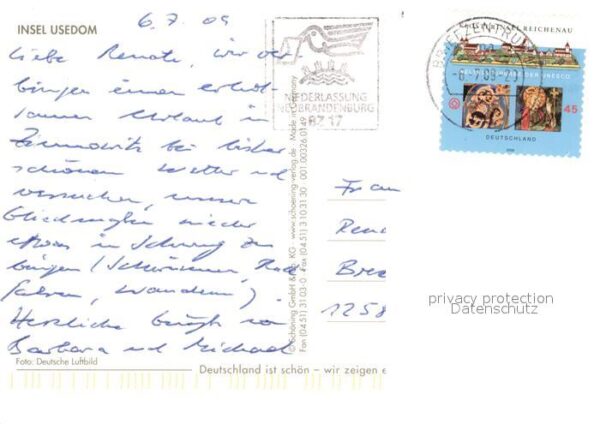 INSEL USEDOM
6.7.09
Liebe Renate, wir ver-
bringen einen erhol-
samen Urlaub in
Zinnowitz bei bisher
schönem Wetter und
versuchen, unsere
Gliedmaßen wieder
etwas in Schwung zu
bringen (Schwimmen, Rad
fahren, wandern).
Herzliche Grüße von
Barbara und Michael
Foto: Deutsche Luftbild
Deutschland ist schön – wir zeigen e
© Schöning GmbH & Co. KG www.schoening-verlag.de - Made in Germany
Fax (04 51) 31 03-0 Fax (04 51) 3 10 31 30 001 00326 0149
NIEDERLASSUNG
NEUBRANDENBURG
BZ 17
BRIEFZENTRUM
REICHENAU
DER UNESCO
45
DEUTSCHLAND
Frau
Rena
Bres
1258
privacy protection
Datenschutz